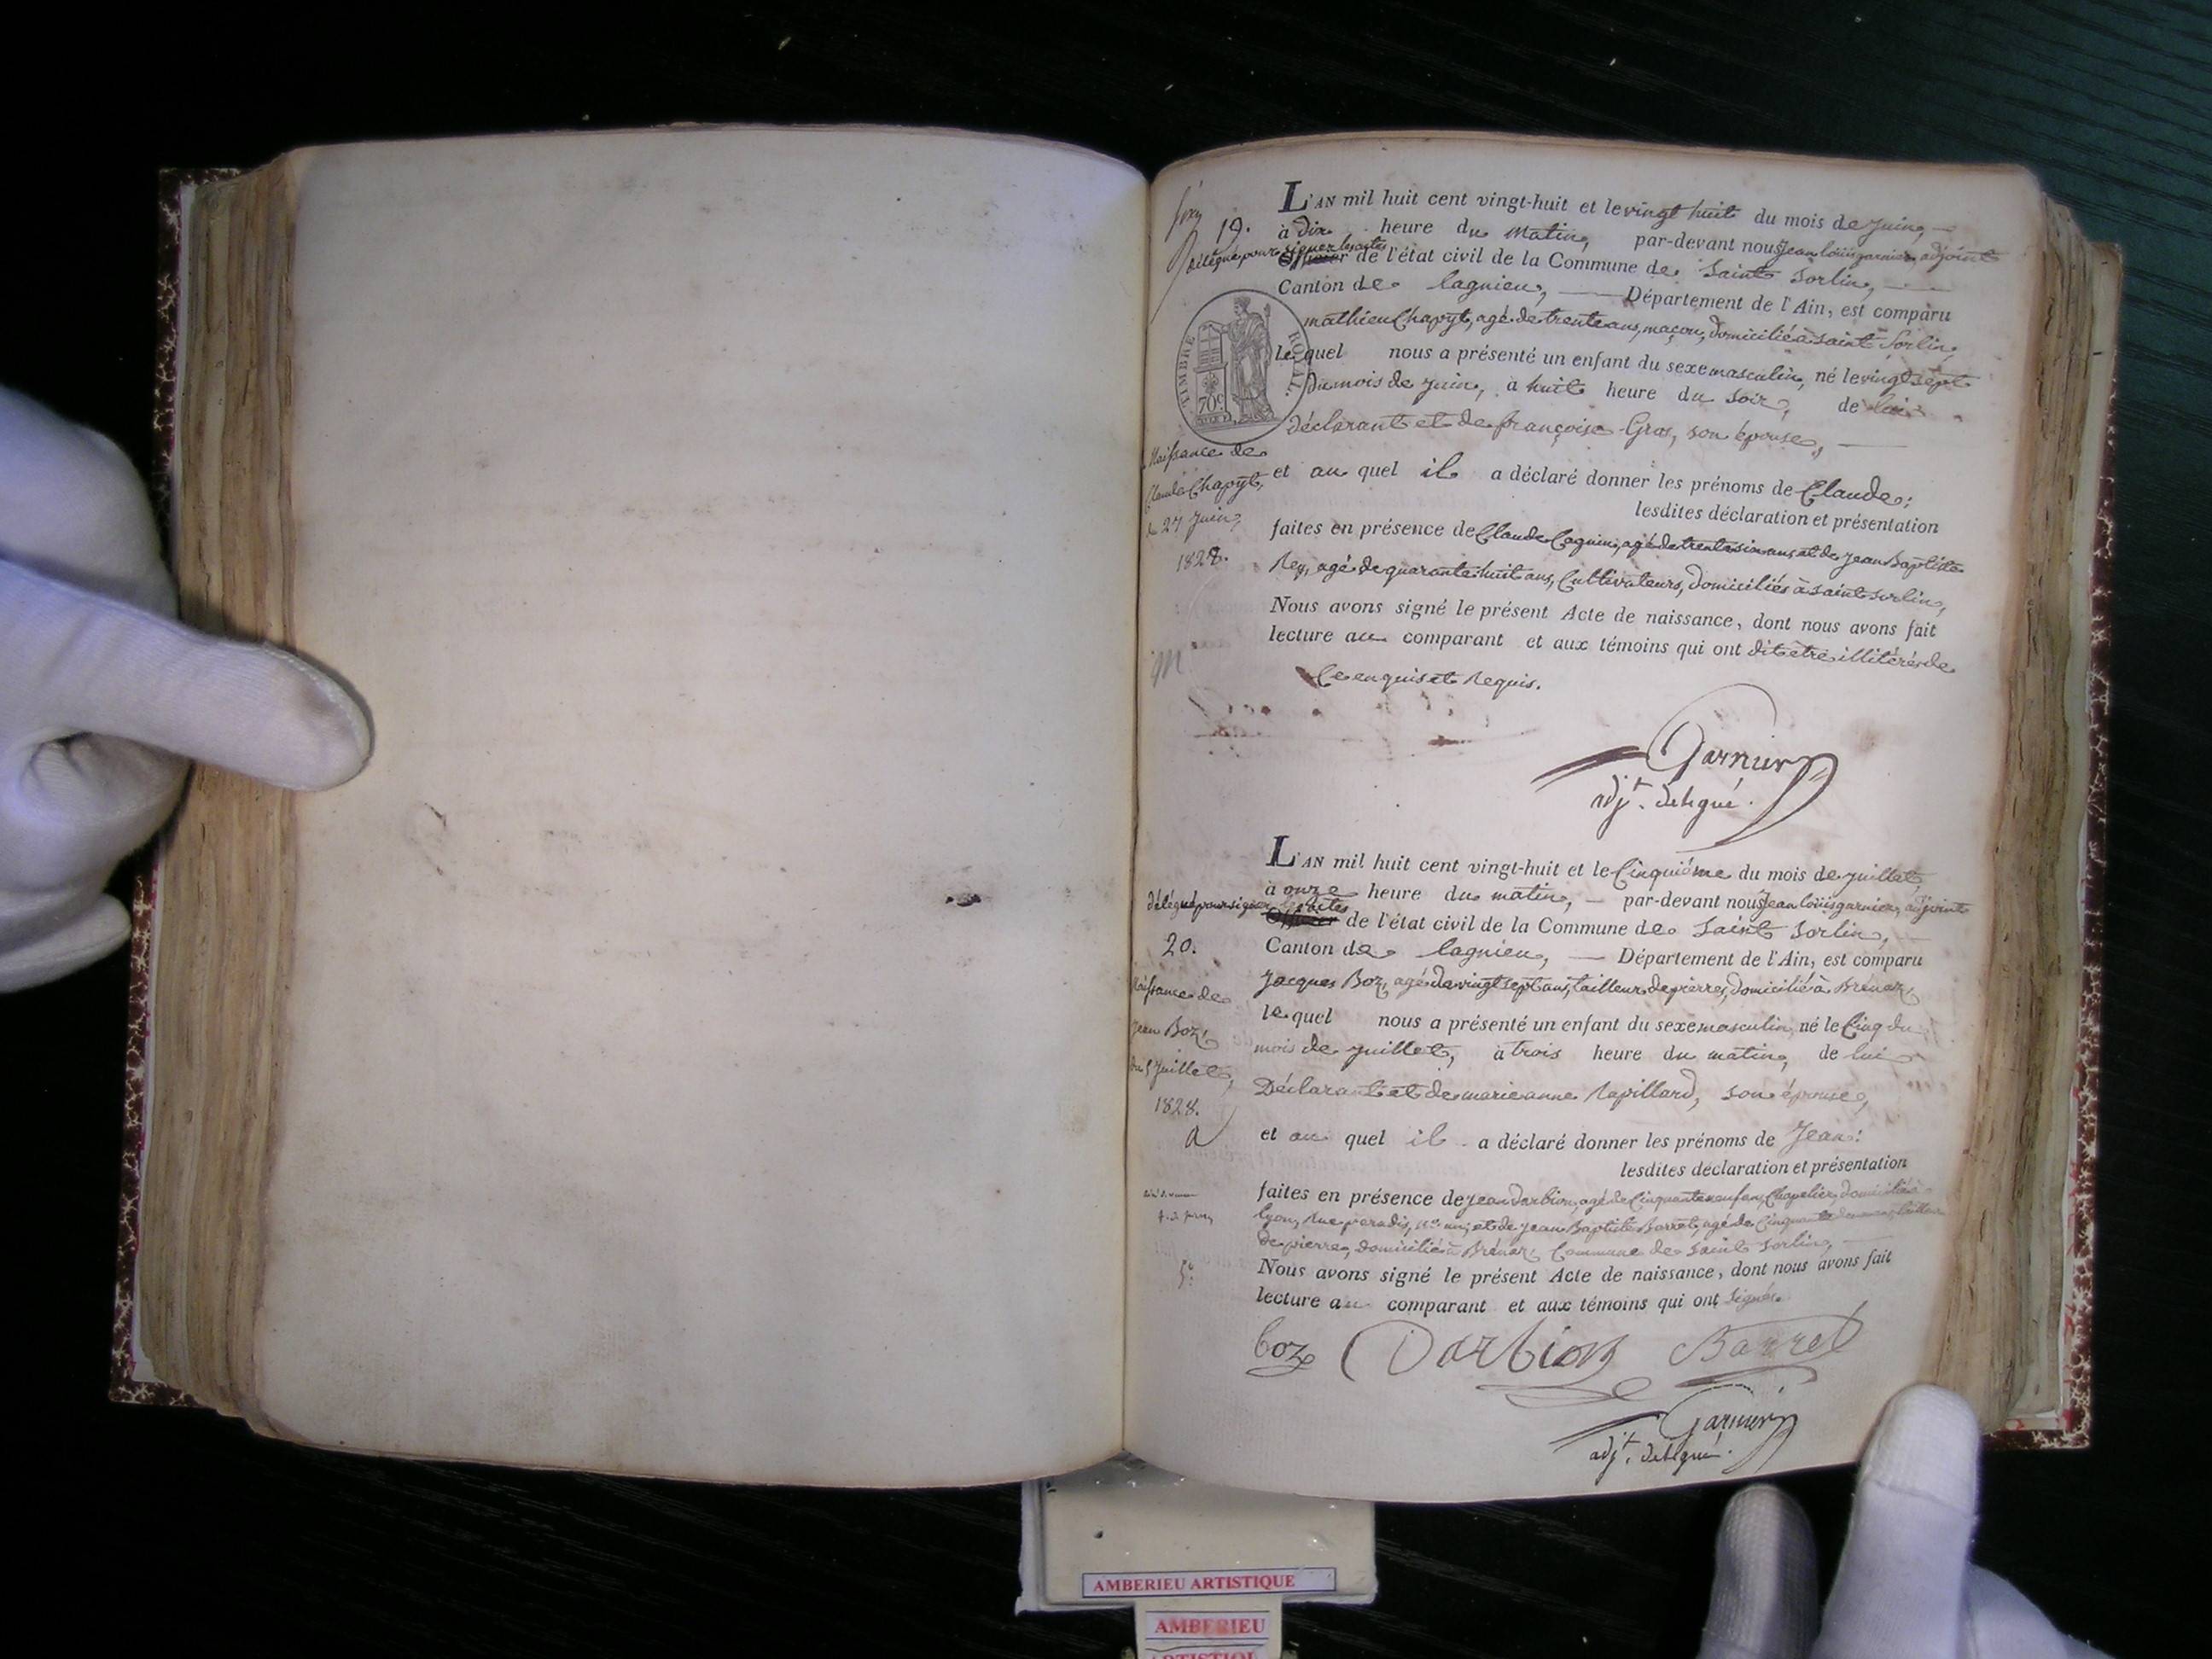 19.
L'AN mil huit cent vingt-huit et le vingt huit du mois de juin, —
à dix heure du matin, par-devant nous Jean louis garnier, adjoint
délégué pour signer les actes
Officier de l'état civil de la Commune de Saint Sorlin, —
Canton de lagnieu, — Département de l'Ain, est comparu
mathieu Chapyt, agé de trente ans, maçon, domicilié à saint Sorlin,
le quel nous a présenté un enfant du sexe masculin, né le vingt sept
du mois de juin, à huit heure du soir, de lui
déclarant et de françoise Gros, son épouse, —
TIMBRE ROYAL.
70c
Naissance de
Claude Chapyt,
du 27 juin,
1828.
et au quel il a déclaré donner les prénoms de Claude;
lesdites déclaration et présentation
faites en présence de Claude Cagnin, agé de trente six ans, et de jean Baptiste
Rey, agé de quarante huit ans, Cultivateurs, domiciliés à saint sorlin,
Nous avons signé le présent Acte de naissance, dont nous avons fait
lecture au comparant et aux témoins qui ont dit être illitérés de
Ce enquis et Requis.
m
Garnier
adjt. délégué.
L'AN mil huit cent vingt-huit et le Cinquième du mois de juillet,
à onze heure du matin, — par-devant nous Jean louis garnier, adjoint
délégué pour signer les actes
Officier de l'état civil de la Commune de Saint Sorlin, —
20.
Canton de lagnieu, — Département de l'Ain, est comparu
Jacques Boz, agé de vingt sept ans, tailleur de pierres, domicilié à Brénaz,
le quel nous a présenté un enfant du sexe masculin, né le Cinq du
mois de juillet, à trois heure du matin, de lui
Déclarant et de marie anne Rapillard, son épouse,
Naissance de
jean Boz,
du 5 juillet,
1828.
a
et au quel il a déclaré donner les prénoms de Jean:
lesdites déclaration et présentation
faites en présence de jean Darbion, agé de Cinquante neuf ans, Chapelier, domicilié à
lyon, Rue paradis, no. un, et de jean Baptiste Barret, agé de Cinquante ans, tailleur
de pierre, domicilié à Brénaz, Commune de Saint Sorlin, —
Nous avons signé le présent Acte de naissance, dont nous avons fait
lecture au comparant et aux témoins qui ont signés.
Boz Darbion Barret
Garnier
adjt. délégué.
AMBERIEU ARTISTIQUE
AMBERIEU
ARTISTIQUE